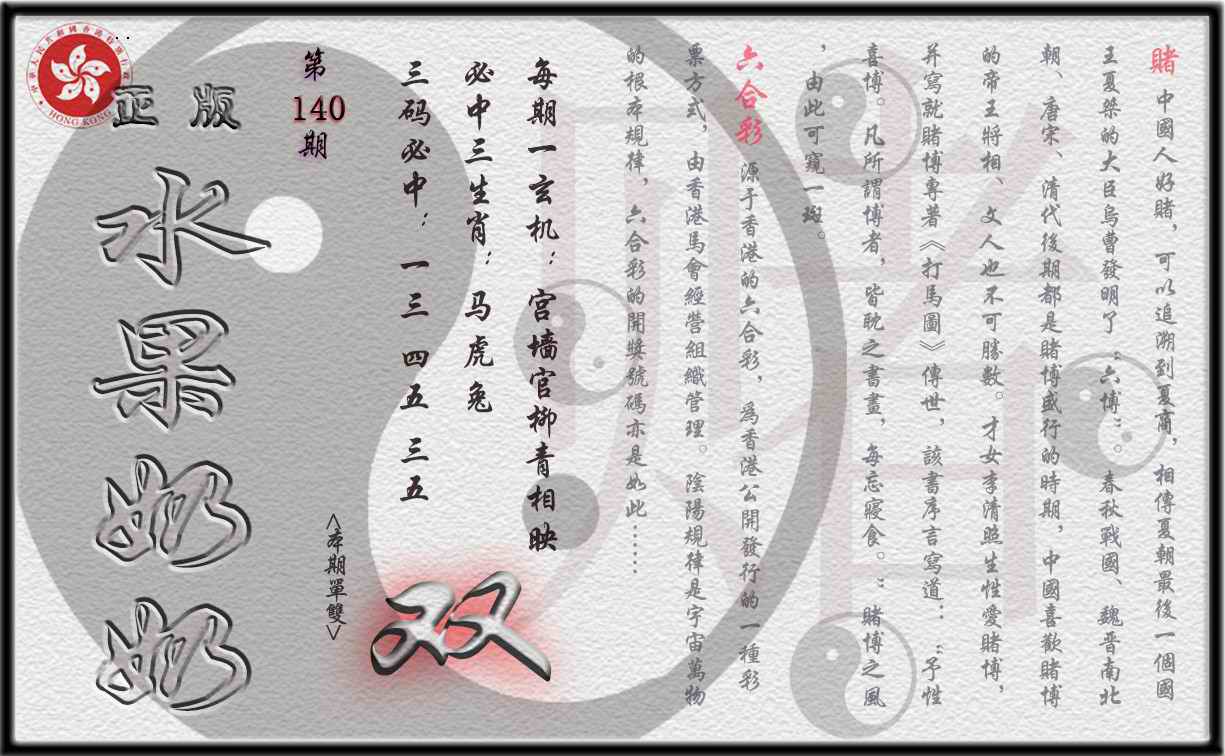 賭 中國人好賭，可以追溯到夏商，相傳夏朝最後一個國
王夏桀的大臣烏曹發明了“六博”。春秋戰國、魏晋南北
朝、唐宋、清代後期都是賭博盛行的時期，中國喜歡賭博
的帝王將相、文人也不可勝數。才女李清照生性愛賭博，
并寫就賭博專著《打馬圖》傳世，該書序言寫道：“予性
喜博。凡所謂博者，皆耽之書畫，每忘寢食。”賭博之風
，由此可窺一斑。
六合彩 源于香港的六合彩，爲香港公開發行的一種彩
票方式，由香港馬會經營組織管理。陰陽規律是宇宙萬物
的根本規律，六合彩的開獎號碼亦是如此……
每期一玄机：宫墙官柳青相映
必中三生肖：马虎兔
三码必中：一三 四五 三五
<本期單雙>
双
第
140
期
正版
水果奶奶
HONG KONG